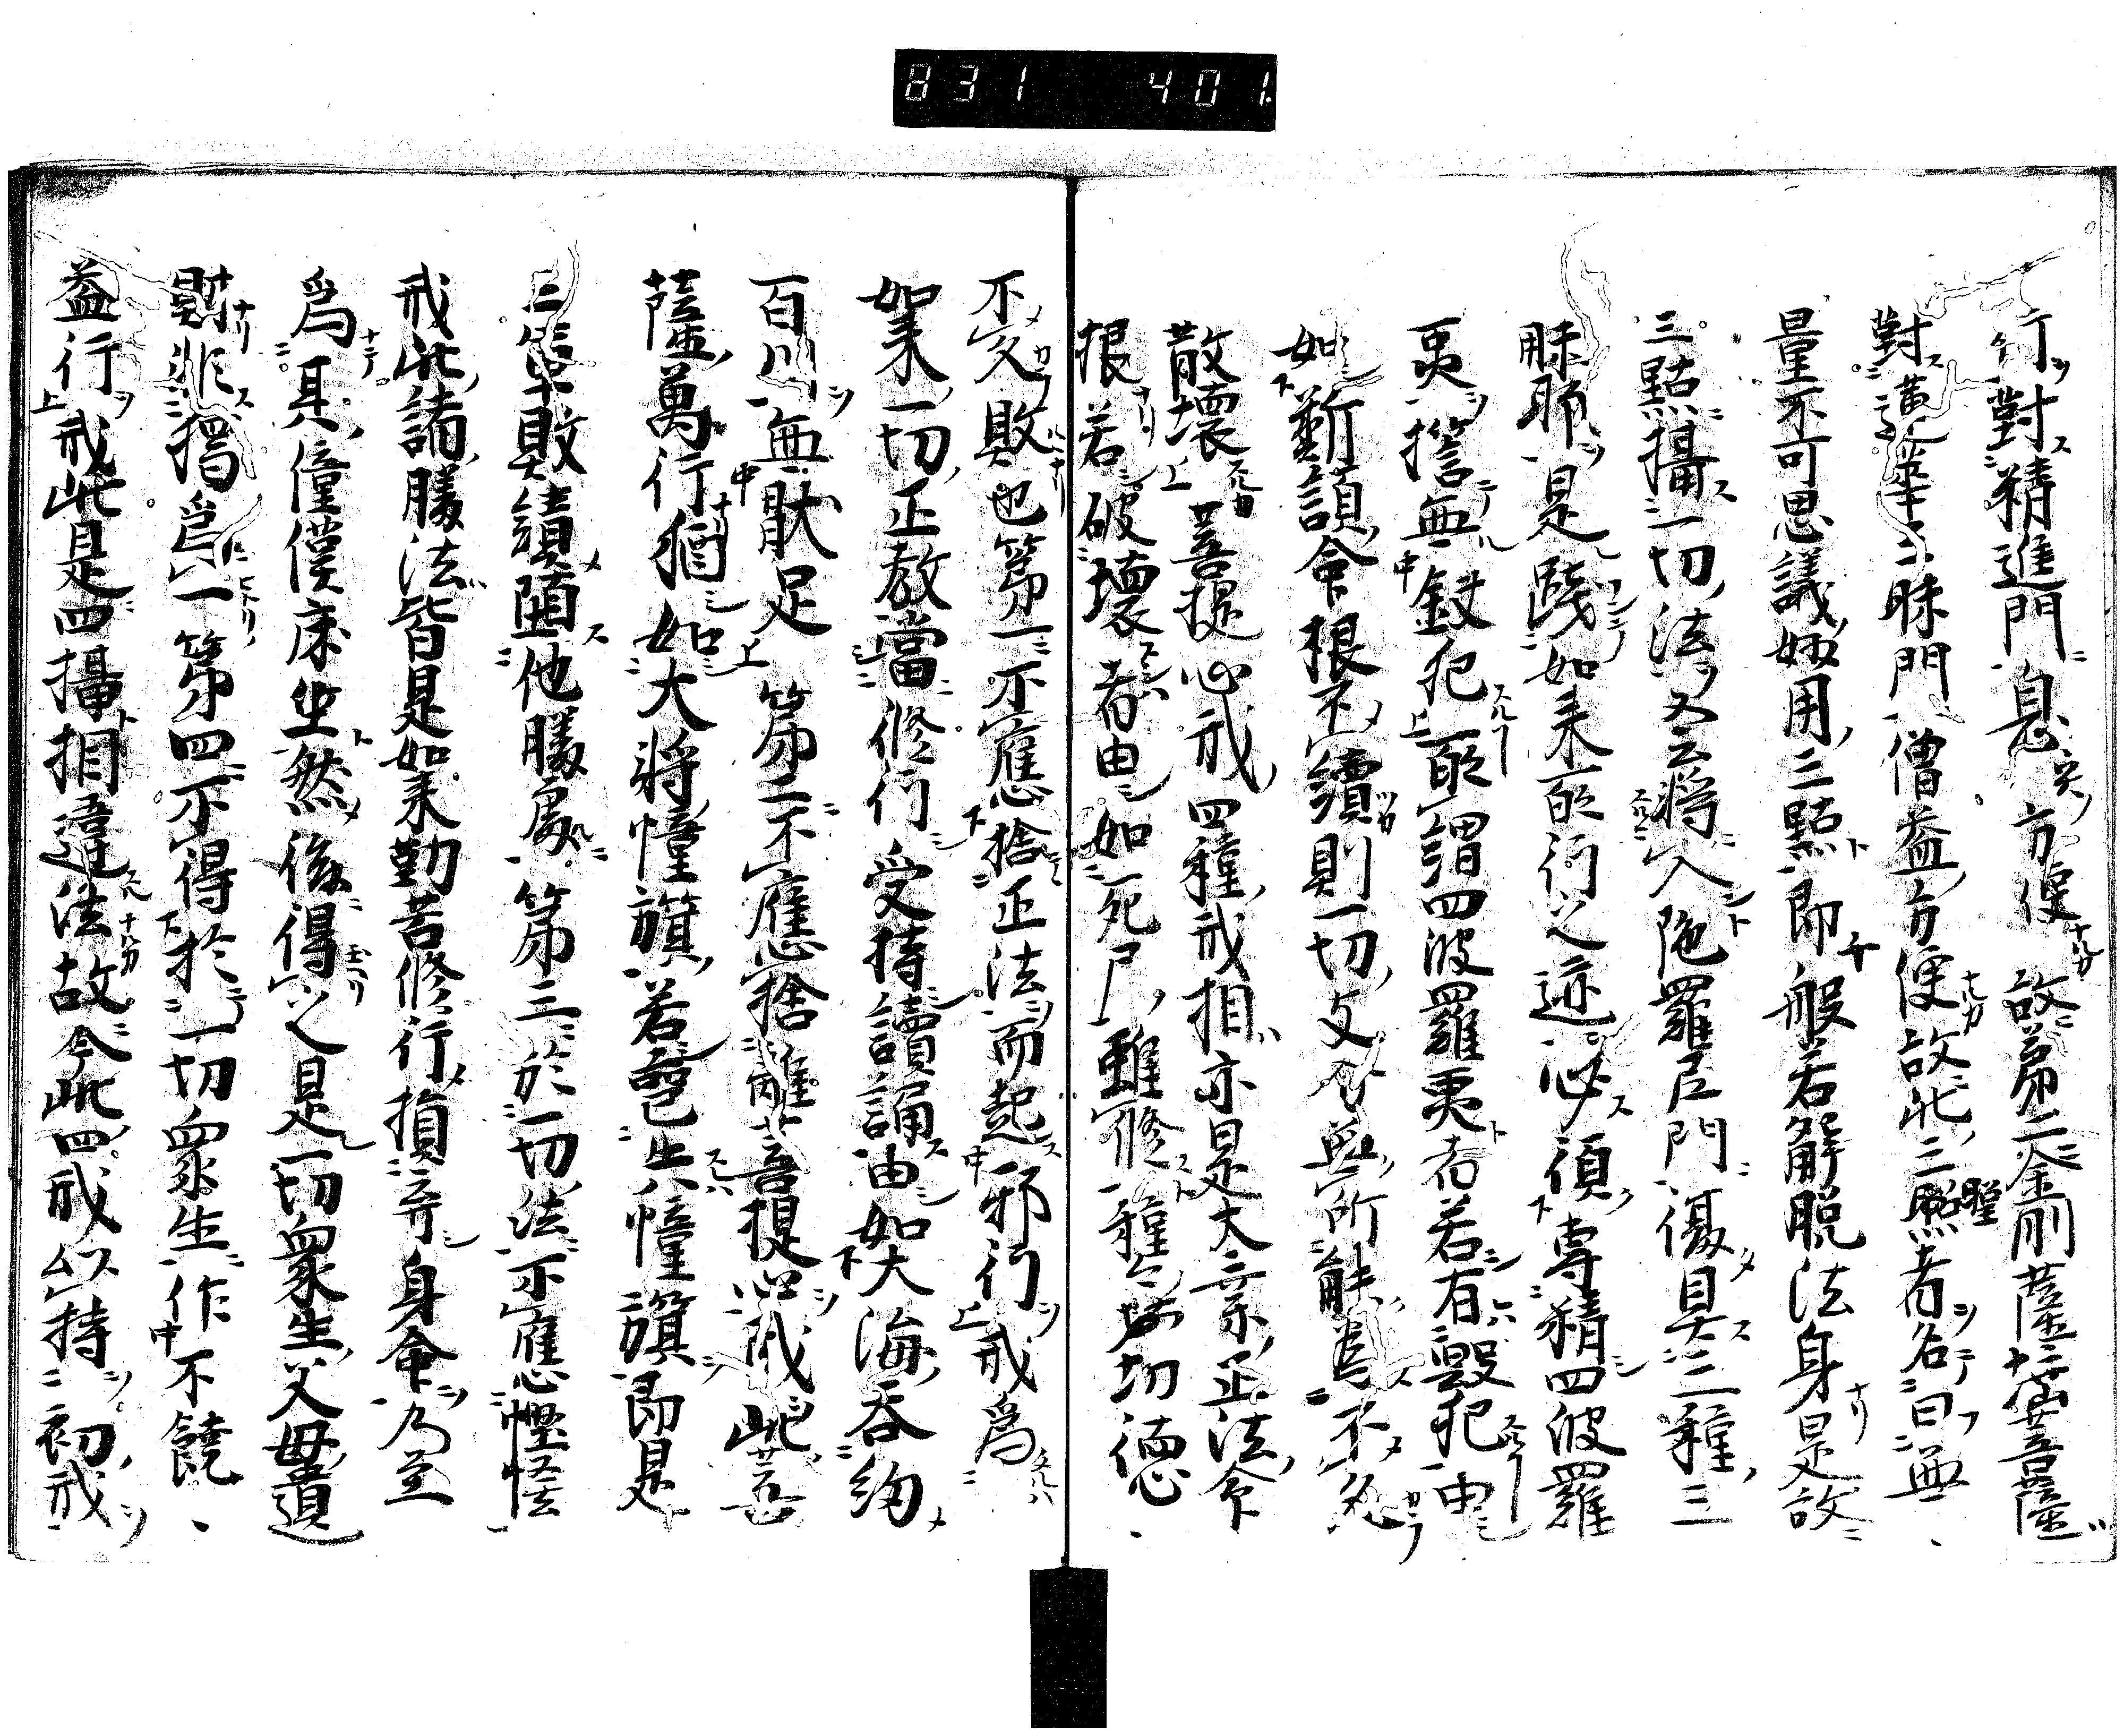 831 401.
行對精進門息方便故第二金剛薩埵菩薩
對蓮華三昧門僧益方便故此三點者名曰無
量不可思議妙用三點即般若解脱法身是故
三點攝一切法又云將入陁羅尼門復具三種三
昧耶是踐如来所行之迹必須專精四波羅
夷擔無敢犯所謂四波羅夷者若有毀犯由
如斬頭命根不續則一切支分無所能為不久
散壞菩提心戒四種戒相亦是大乗正法命
根若破壞者由如死尸雖修種々功德
不久敗也第一不應捨正法而起邪行戒為
如来一切正教當修行受持讀誦由如大海吞納
百川無猒足第二不應捨離菩提心戒此菩
薩萬行猶如大將幢旗若喪失幢旗即是
三軍敗績墮他勝處第三於一切法不應慳悋
戒此諸勝法皆是如来勤苦修行損弃身命乃至
為具僮僕床坐然後得之是一切衆生父母遺
財非獨為一第四不得於一切衆生作不饒
益行戒此是四攝相違法故今此四戒以持初戒